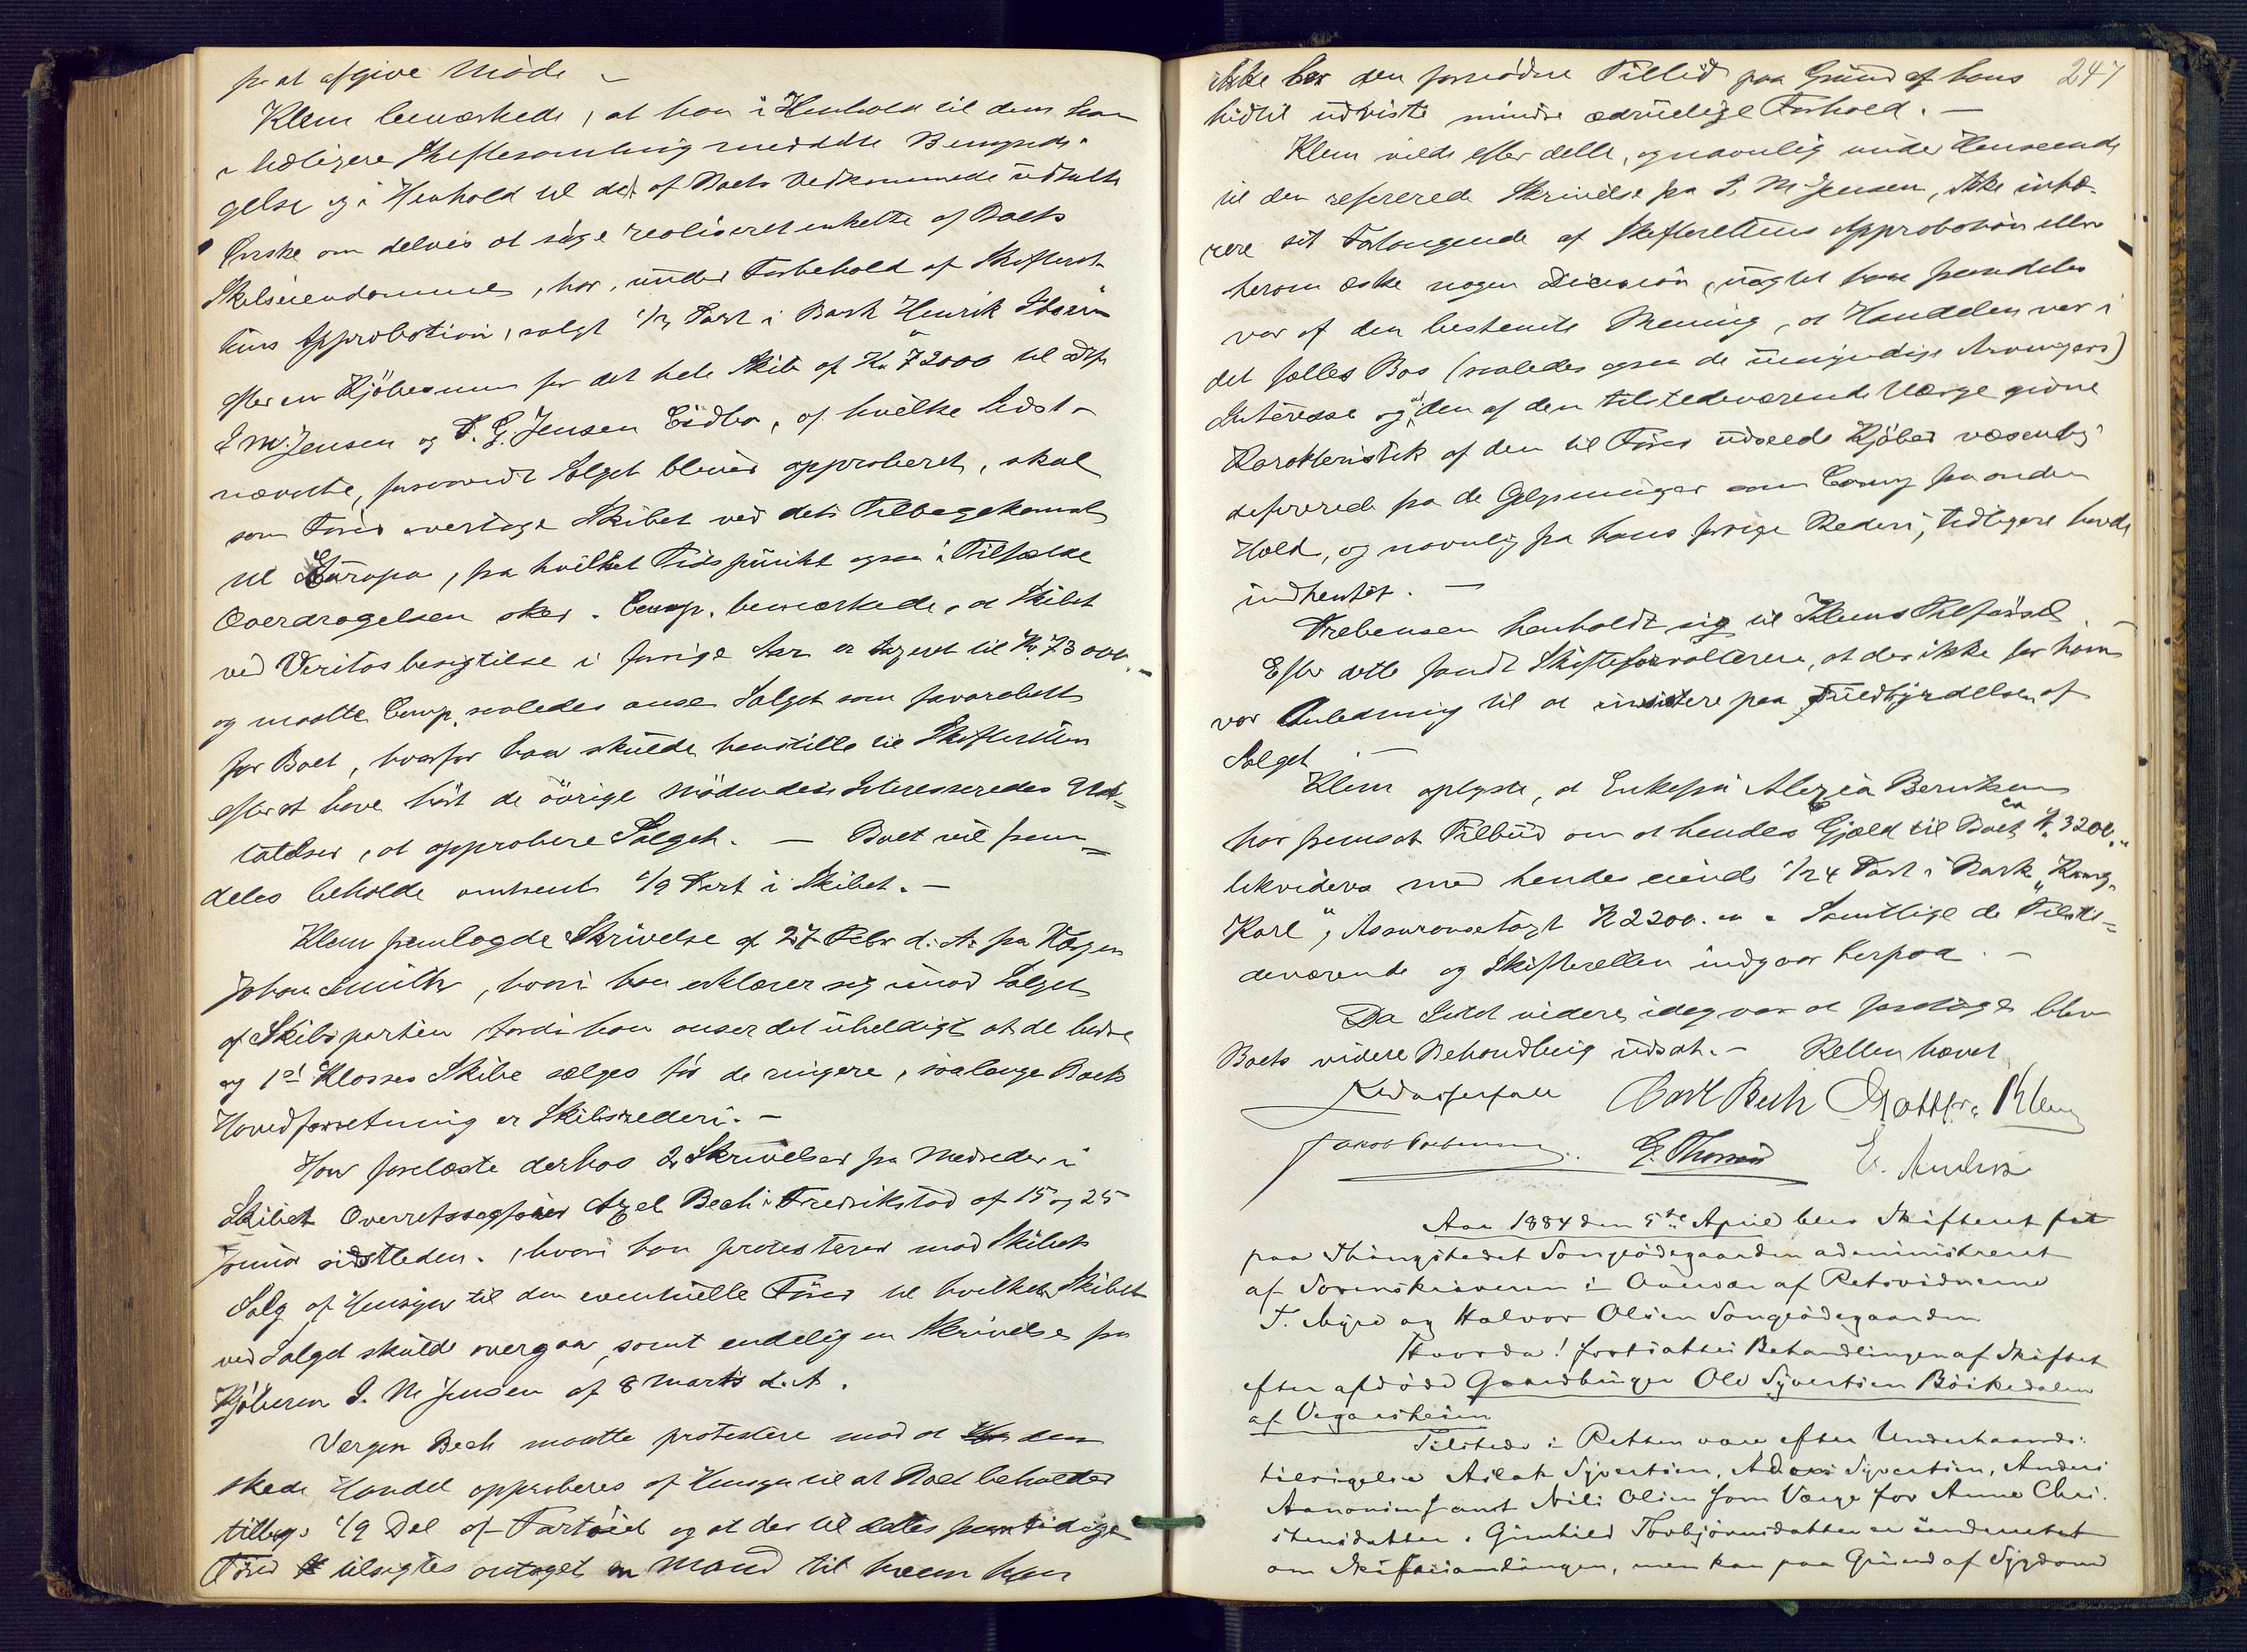 for at afgive Møde –
Klem bemærkede, at han i Henhold til dem han
i tidligere Skiftesamling meddelte Bemyndi-
gelse og i Henhold til det af Boets Vedkommende udtalte
Ønske om delvis at søge realiseret enkelte af Boets
Skibseiendomme, har, under Forbehold af Skifteret-
tens Approbation, solgt Part i Bark Henrik
efter en Kjøbesum for det hele Skib af Kr 72000 til
I M. Jensen og T. G. Jensen, af hvilke sidst-
nævnte, forsaavidt Salget bliver approberet, skal
som Fører overtage Skibet ved dets Tilbagekomst
til Europa, fra hvilket Tidspunkt ogsaa i Tilfælde
Overdragelsen sker. Comp. bemærkede, at Skibet
ved Veritas besigtilse i forrige Aar er taxeret til Kr. 73000.–
og maatte Comp. saaledes anse Salget som favorabelt
for Boet, hvorfor han skulde henstille til Skifteretten
efter at have hørt de øvrige mødende Interesseredes Ud-
talelser, at approbere Salget. – Boet vil frem-
deles beholde omtrent 1/9 Part i Skibet. –
Klem fremlagde Skrivelse af 27 Febr d. A. fra Værgen
Johan Smith, hvori han erklærer sig imod Salget
af Skibsparten fordi han anser det uheldigt at de bedre
og 1ste Klasses Skibe sælges før de ringere, saalænge Boets
Hovedforretning er Skibsrederi. –
Han forelæste derhos 2 Skrivelser fra Medreder i
Skibet Overretssagfører Axel Bech i Fredrikstad af 15 og 25
sidstleden, hvori han protesterer mod Skibets
Salg af Hensyn til den eventuelle Fører til hvilken Skibet
ved Salget skulde overgaa, samt endelig en Skrivelse fra
Kjøberen I. M Jensen af 8 Marts d. A.
Værgen Bech maatte protestere mod at den
skede Handel approberes af Hensyn til at Boet beholder
tilbage 1/9 Del af Fartøiet og at der til dettes fremtidige
Fører tilsigtes antaget en Mand til hvem han
247
ikke har den fornødne Tillid paa Grund af hans
hidtil udviste mindre ædruelige Forhold. –
Klem vilde efter dette, og navnlig under Henseende
til den refererede Skrivelse fra I. M Jensen, ikke inhæ-
rere sit Forlangende af Skifterettens Approbation eller
herom æske nogen Decision, uagtet han fremdeles
var af den bestemte Mening, at Handelen var i
det fælles Bos (saaledes ogsaa de umyndige Arvingers)
Interesse og at den af den tilstedeværende Værge givne
Karakteristik af den til Fører udseede Kjøber væsentlig
differerede fra de Oplysninger som Comp fra anden
Hold, og navnlig fra hans forrige Rederi, tidligere havde
indhentet. –
Trebensen henholdt sig til Klems Tilførsel
Efter dette fandt Skifteforvalteren, at der ikke for ham
var Anledning til at insistere paa Fuldbyrdelsen af
Salget
Klem oplyste, at Enkefru Alezia Berntsen
har fremsat Tilbud om at hendes Gjæld til Boet ca Kr. 3200.
likvideres med hendes eiende 1/24 Part i Bark "Kong
Karl", Assurancetaxt K 2200. – Samtlige de Tilste-
deværende og Skifteretten indgaar herpaa. –
Da Intet videre idag var at foretage blev
Boets videre Behandling udsat. – Retten hævet
Carl Bech Klem
Jakob Trebensen. G. Thorsen
Aar 1884 den 5te April blev Skifteret sat
paa Thingstedet Songeødegaarden administreret
af Sorenskriveren i Overvær af Retsvidnerne
T. Myre og Halvor Olsen Songeødegaarden
Hvorda! fortsattes Behandlingen af Skiftet
efter afdøde Gaardbruger Ole Syvertsen Bøikedalen
af Vegaarsheien
Tilstede i Retten vare efter Underhaands-
tilsigelse Aslak Syvertsen, Syvertsen, Anders
Aanonsen samt Nils Olsen som Værge for Anne Chri-
stensdatter. Gunhild Torbjørnsdatter er underrettet
om Skiftesamlingen, men kan paa Grund af Sygdom